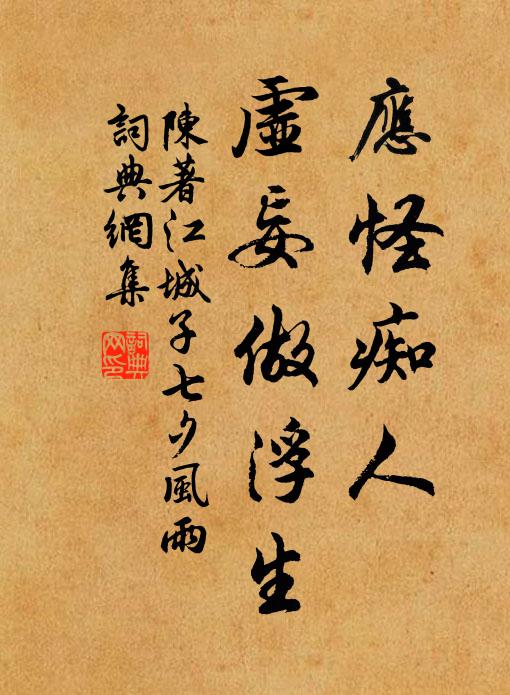 應怪痴人
虛妄做浮生
陳著江城子七夕風雨
詞典網集
詞典網印